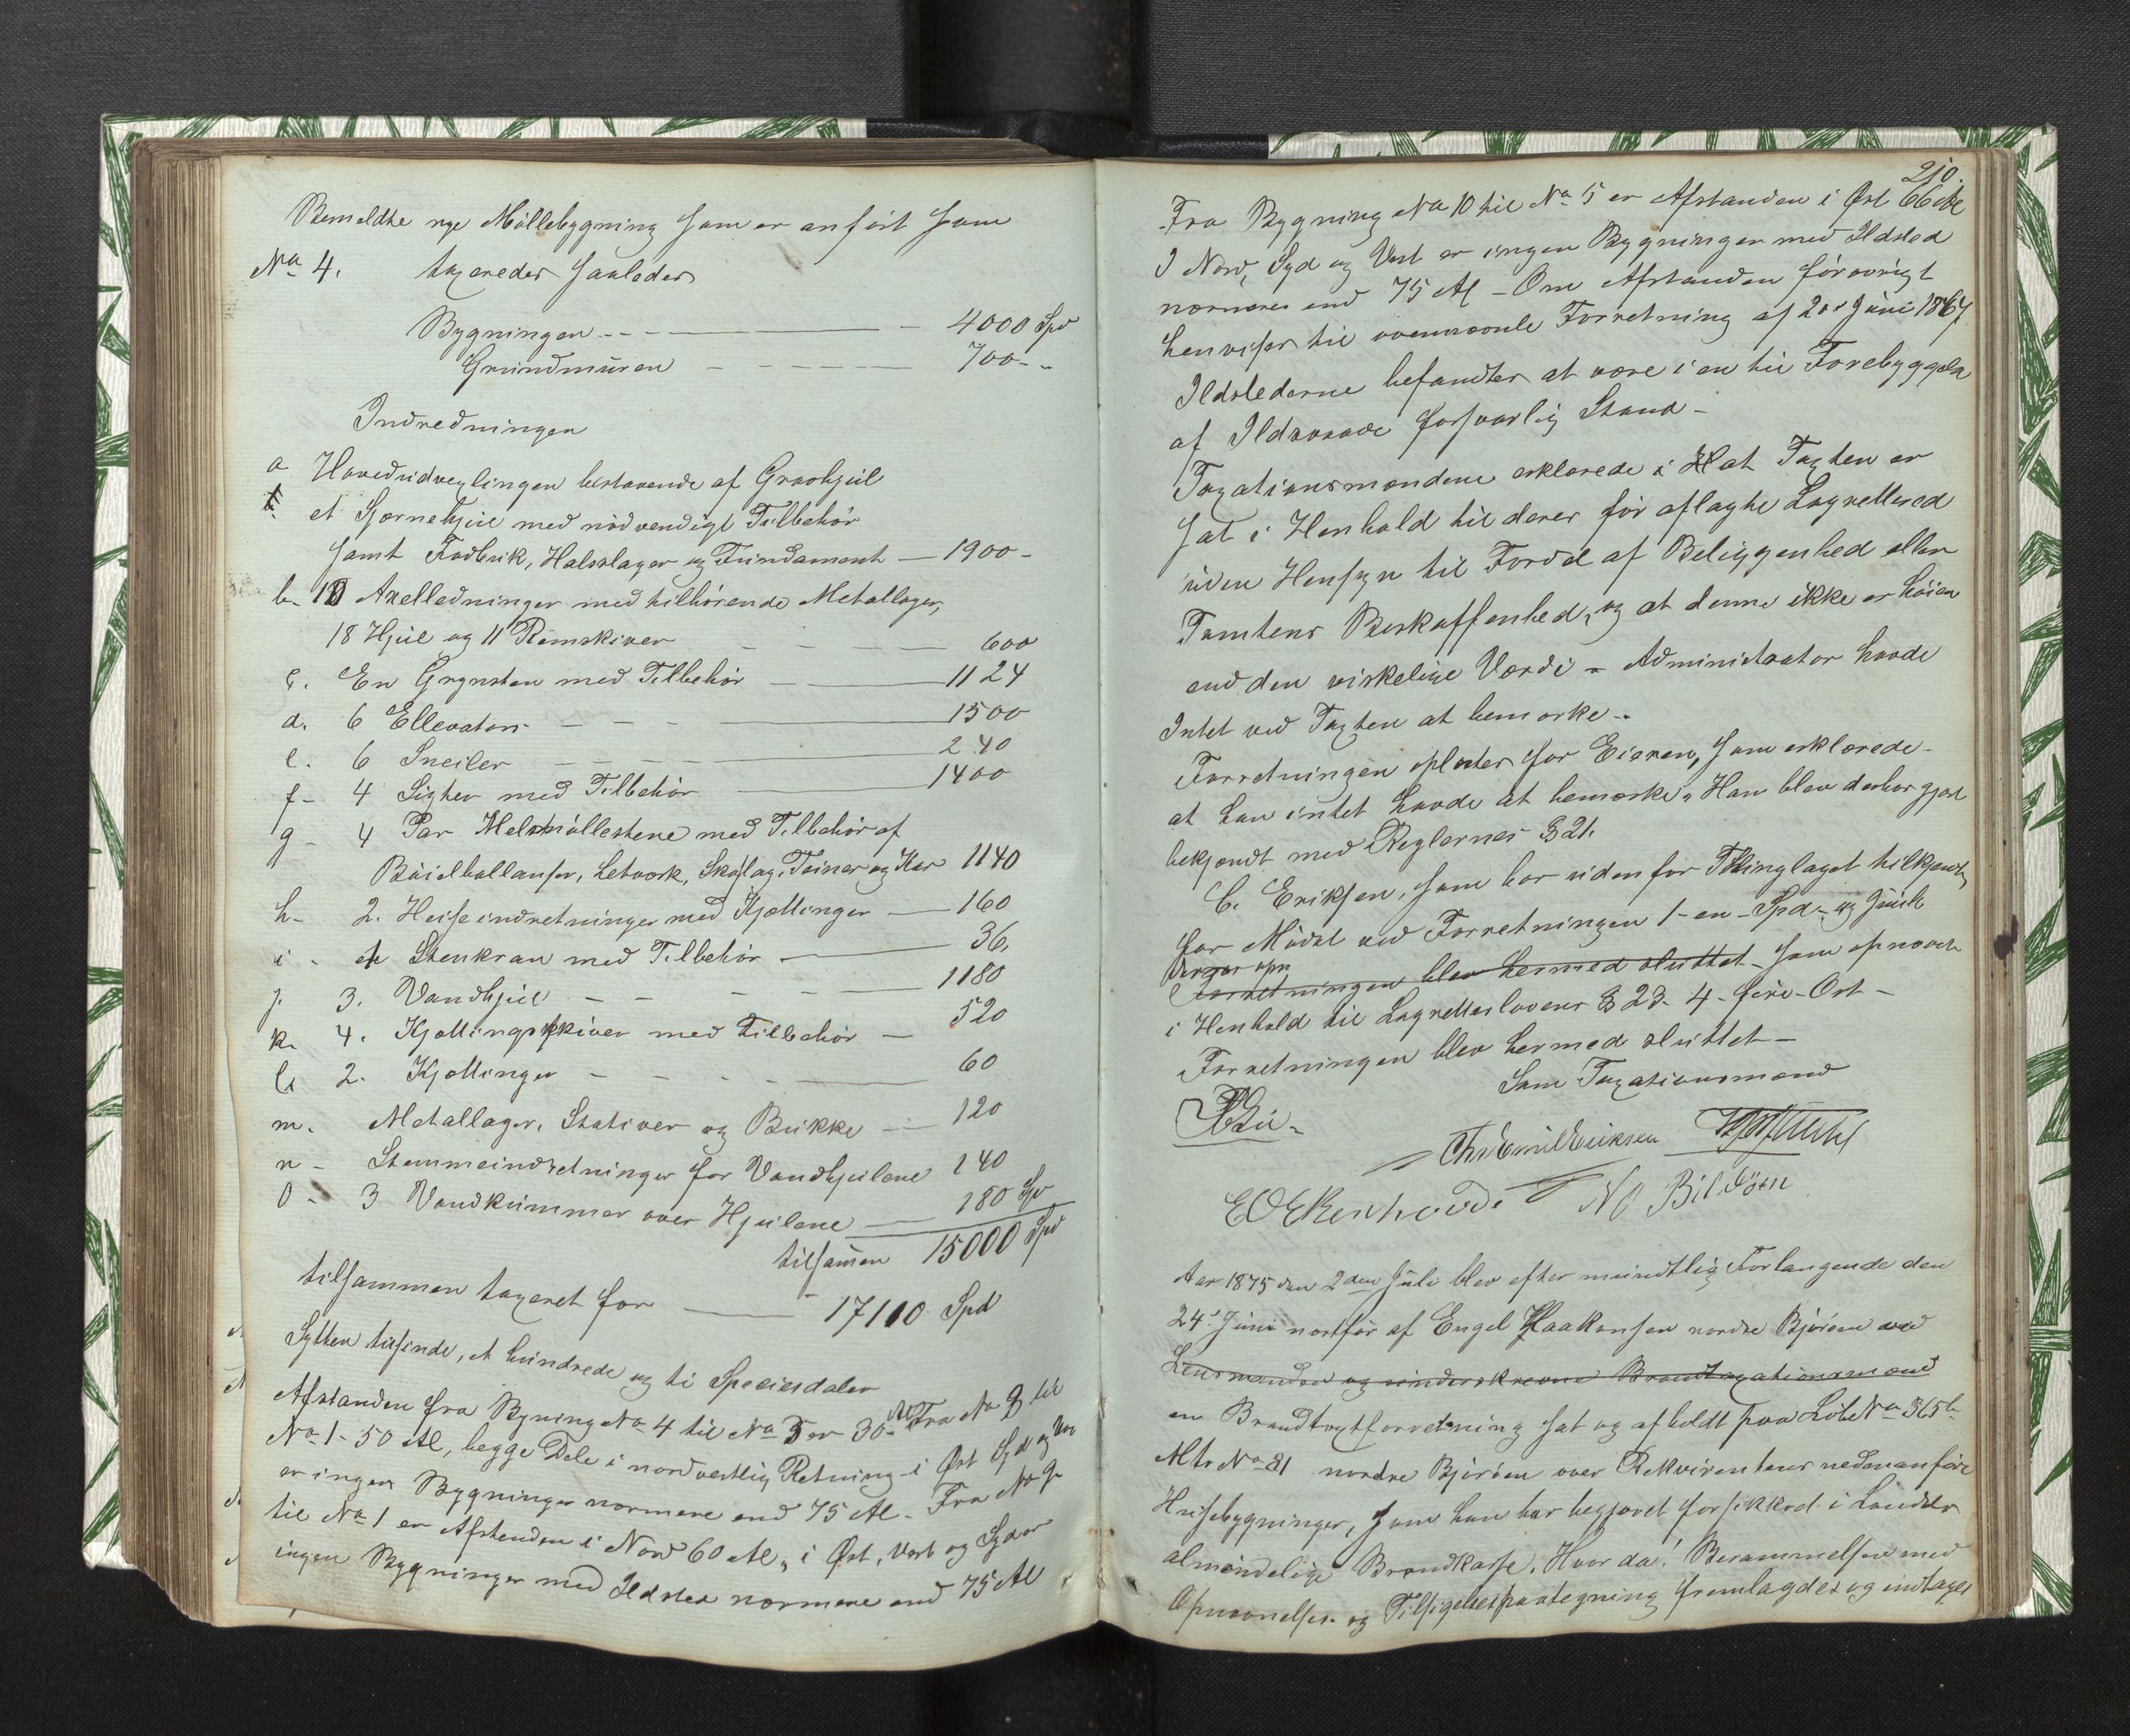 Bemeldte nye Möllebygning som er anfört som
No 4. taxeredes saaledes
Bygningen - - - 4000 Spd
Grundmuren - - - 700 - "
Indredningen
a Hovedudvexlingen bestaaende af Gravhjul
et Stjernehjul med nödvendigt Tilbehör
samt Fodbrik, Halslager og Fundament - 1900 -
b. 10 Axelledninger med tilhörende Metallager,
18 Hjul og 11 Remskiver - - - 600
c. En Grynsten med Tilbehör - 1124
d. 6 Ellevators - - - 1500
e. 6 Sneiler - - - 240
f - 4 Sigter med Tilbehör - 1400
g - 4 Par Melmöllestene med Tilbehör af
Letværk, Skaflag, Teiner og Kar 1140
h - 2. Heiseindretninger med Kjættinger - 160
i - en Stenkran med Tilbehör - 36,
j. 3. Vandhjul - - - 1180
k. 4. Kjættingskiver med Tilbehör - 520
l. 2. Kjættinger - - - 60
m. Metallager, Stativer og Bukke - 120
n - Stemmeindretninger for Vandhjulene 140
o - 3 Vandkummer over Hjulene - 180 Spd
tilsamen 15000 Spd
tilsammen taxeret for - 17110 Spd
Sytten tusinde, et hundrede og ti Speciesdaler
Afstanden fra Bygning No 4 til No 5 er 30 Al Fra No 8 til
No 1 - 50 Al, begge Dele i nordvestlig Retning - i Øst Syd og Ves
er ingen Bygninger nærmere end 75 Al - Fra No 9
til No 1 er Afstanden i Nord 60 Al, i Øst, Vest og Syd er
ingen Bygninger med Ildsted nærmere end 75 Al
210.
Fra Bygning No 10 til No 5 er Afstanden i Øst 66 Al
I Nord, Syd og Vest er ingen Bygninger med Ildsted
nærmere end 75 Al - Om Afstanden forövrigt
henvises til ovennævnte Forretning af 20de Juni 1867
Ildstederne befandtes at være i en til Forebyggelse
af Ildsvaade forsvarlig Stand -
Taxationsmændene erklærede i at Taxten er
sat i Henhold til deres för aflagte Lagretteseed
uden Hensyn til Fordel af Beliggenhed eller
Tomtens Beskaffenhed, og at denne ikke er höiere
end den virkelige Værdi - Administrator havde
Intet ved Taxten at bemærke -
Forretningen oplæstes for Eieren, som erklærede
at han intet havde at bemærke. Han blev derhos gjort
bekjændt med Reglernes § 21.
C. Eriksen, som bor udenfor Thinglaget tilkjendtes
for Mödet ved Forretningen 1 - en - Spd - og
Forretningen blev hermed sluttet - som opnævnt
i Henhold til Lagretteslovens § 23 - 4 - fire - Ort -
Forretningen blev hermed sluttet -
Som Taxationsmænd
Chr Emil Eriksen
N O Bildöen
Aar 1875 den 2den Juli blev efter mundtlig Forlangende den
24de Juni næstför af Engel Haakonsen nordre Björöen ved
Lensmanden og underskrevne Brandtaxationsmænd
en Brandtaxtforretning sat og afholdt paa Löbe No 365 b
Mtr No 81 nordre Björöen over Rekvirentens nedenanförte
Husebygninger, som han har begjæret forsikkret i Landets
almindelige Brandkasse. Hvor da! Berammelsen med
Opnævnelses- og Tilsigelsespaategning fremlagdes og indtages